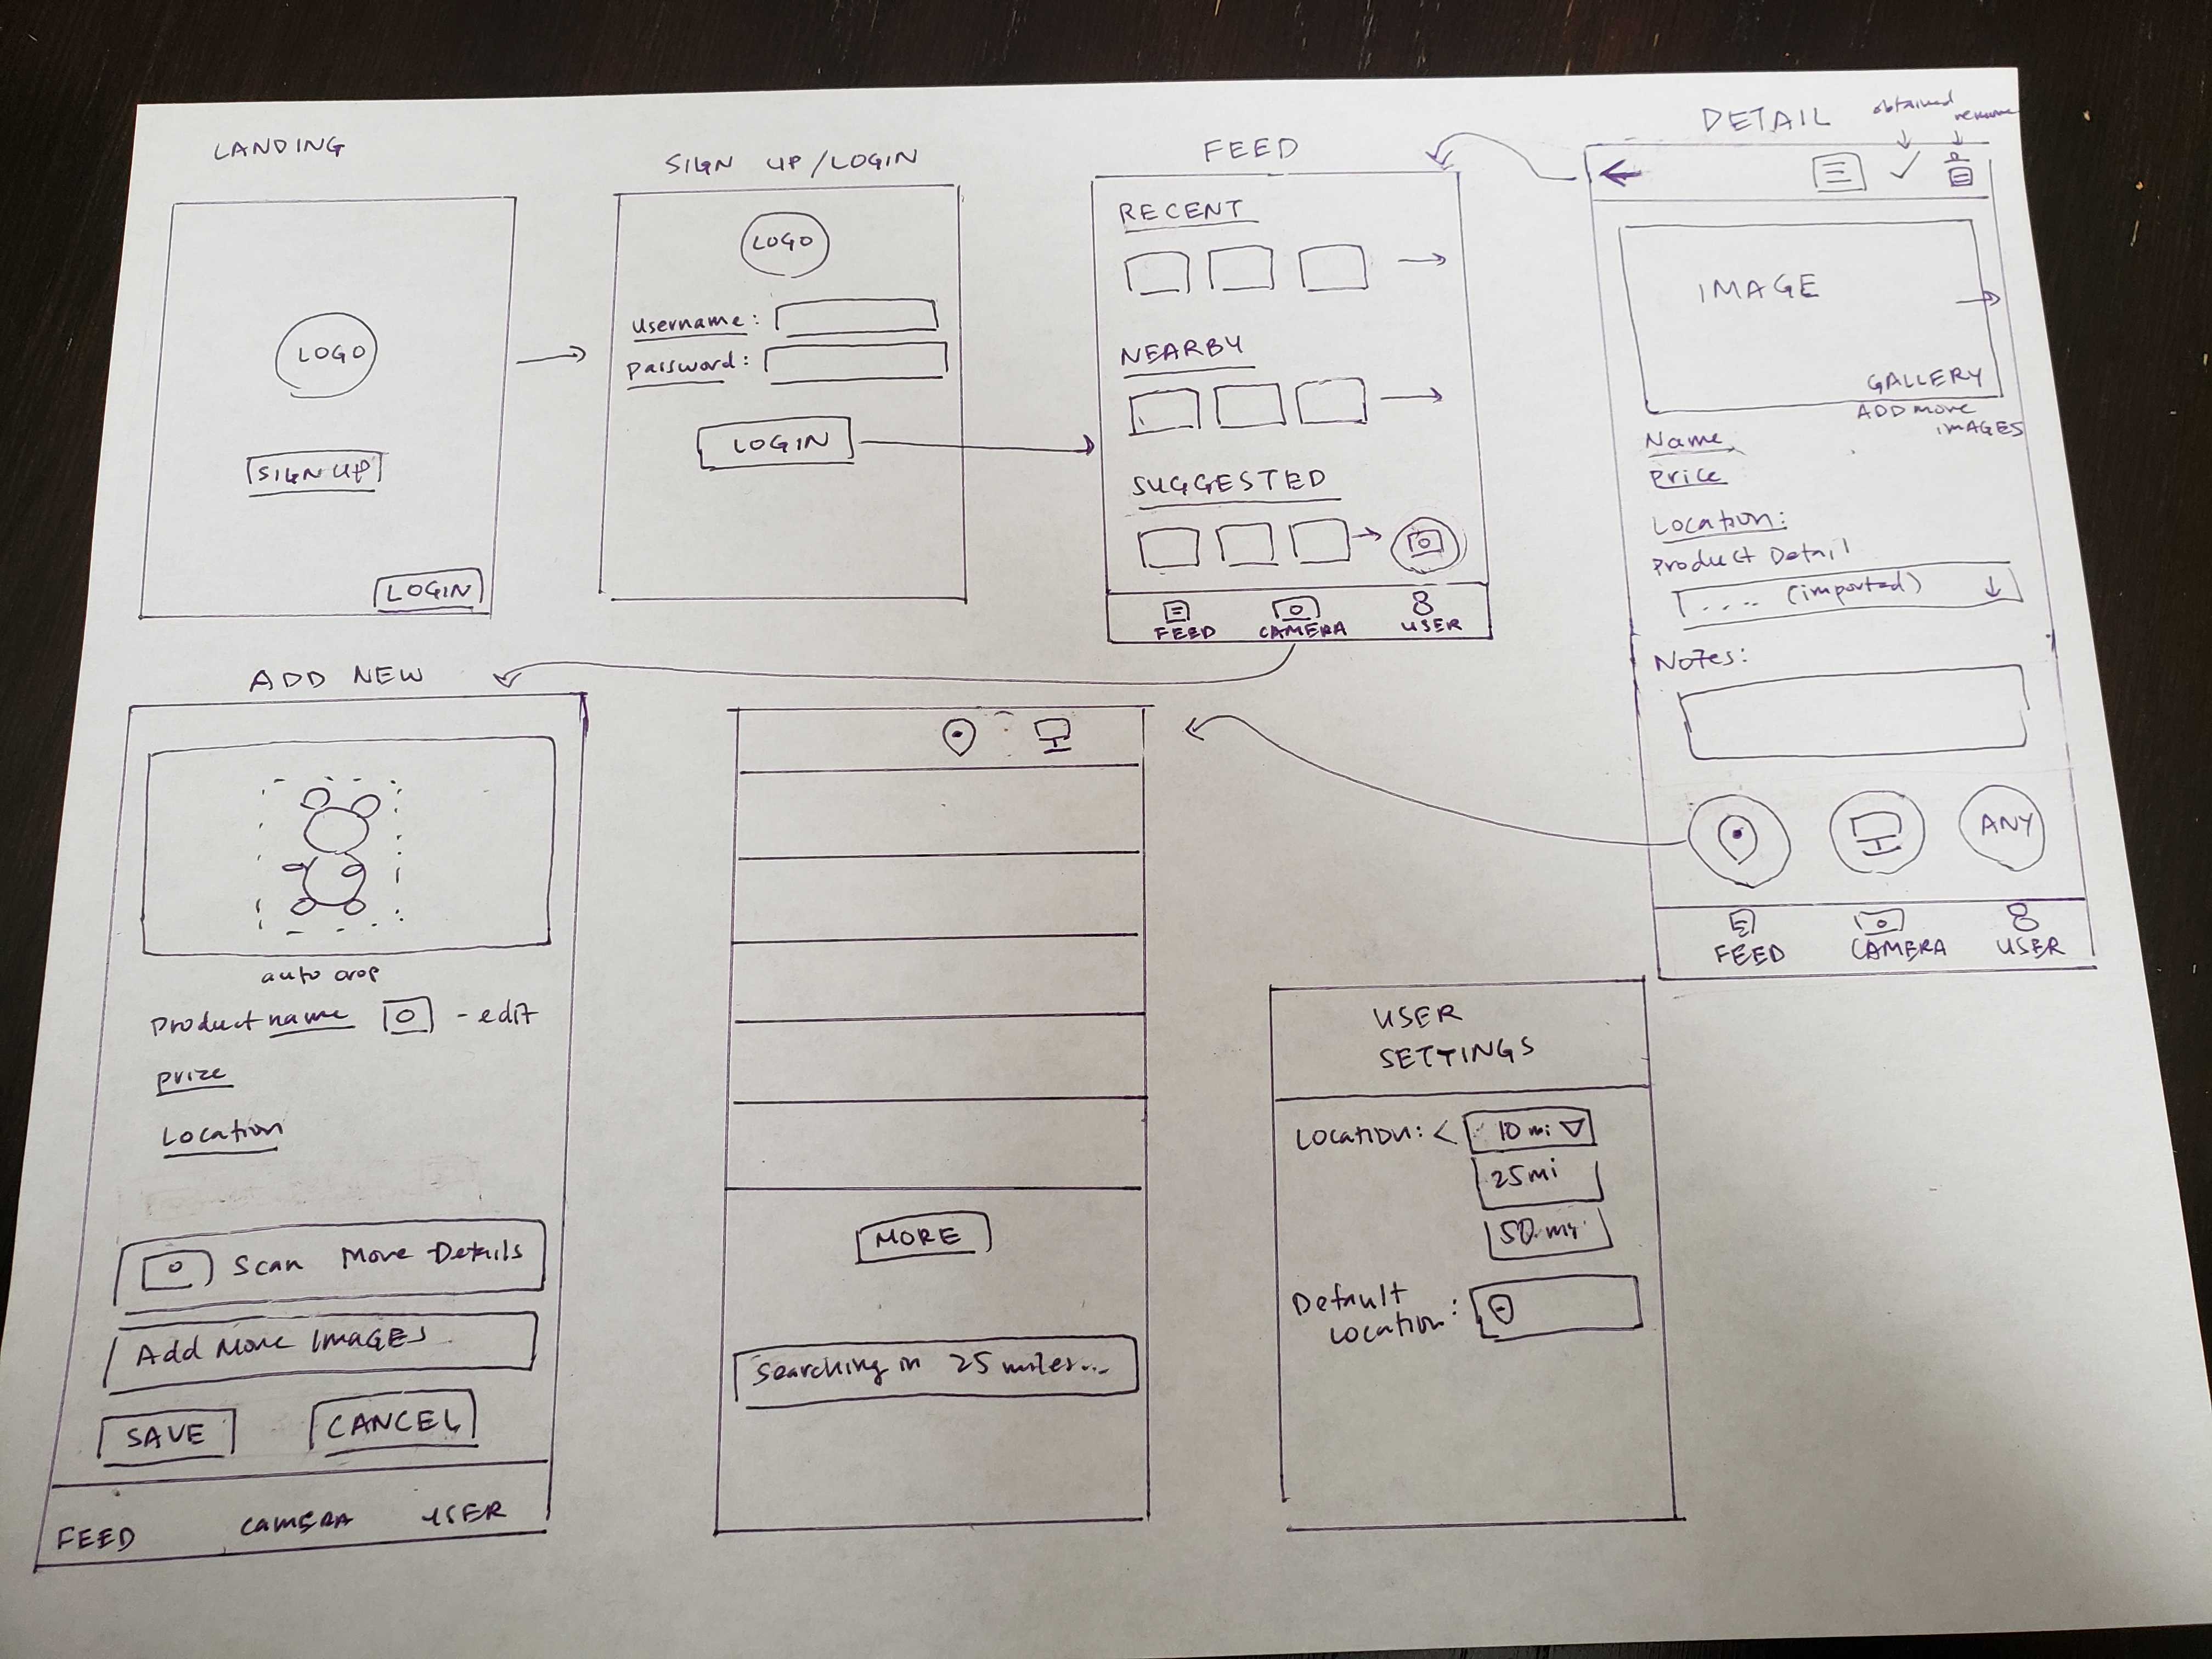 LANDING
LOGO
SIGN UP
LOGIN
SIGN UP/LOGIN
LOGO
username:
password:
LOGIN
FEED
RECENT
NEARBY
SUGGESTED
FEED CAMERA USER
DETAIL
obtained
IMAGE
GALLERY
ADD more
IMAGES
Name
Price
Location:
Product Detail
.... (imported)
Notes:
ANY
FEED CAMERA USER
ADD NEW
auto crop
Product name - edit
price
Location
Scan More Details
Add More IMAGES
SAVE CANCEL
FEED CAMERA USER
MORE
Searching in 25 miles...
USER
SETTINGS
Location: < 10 mi
25mi
50 mi
Default
Location: